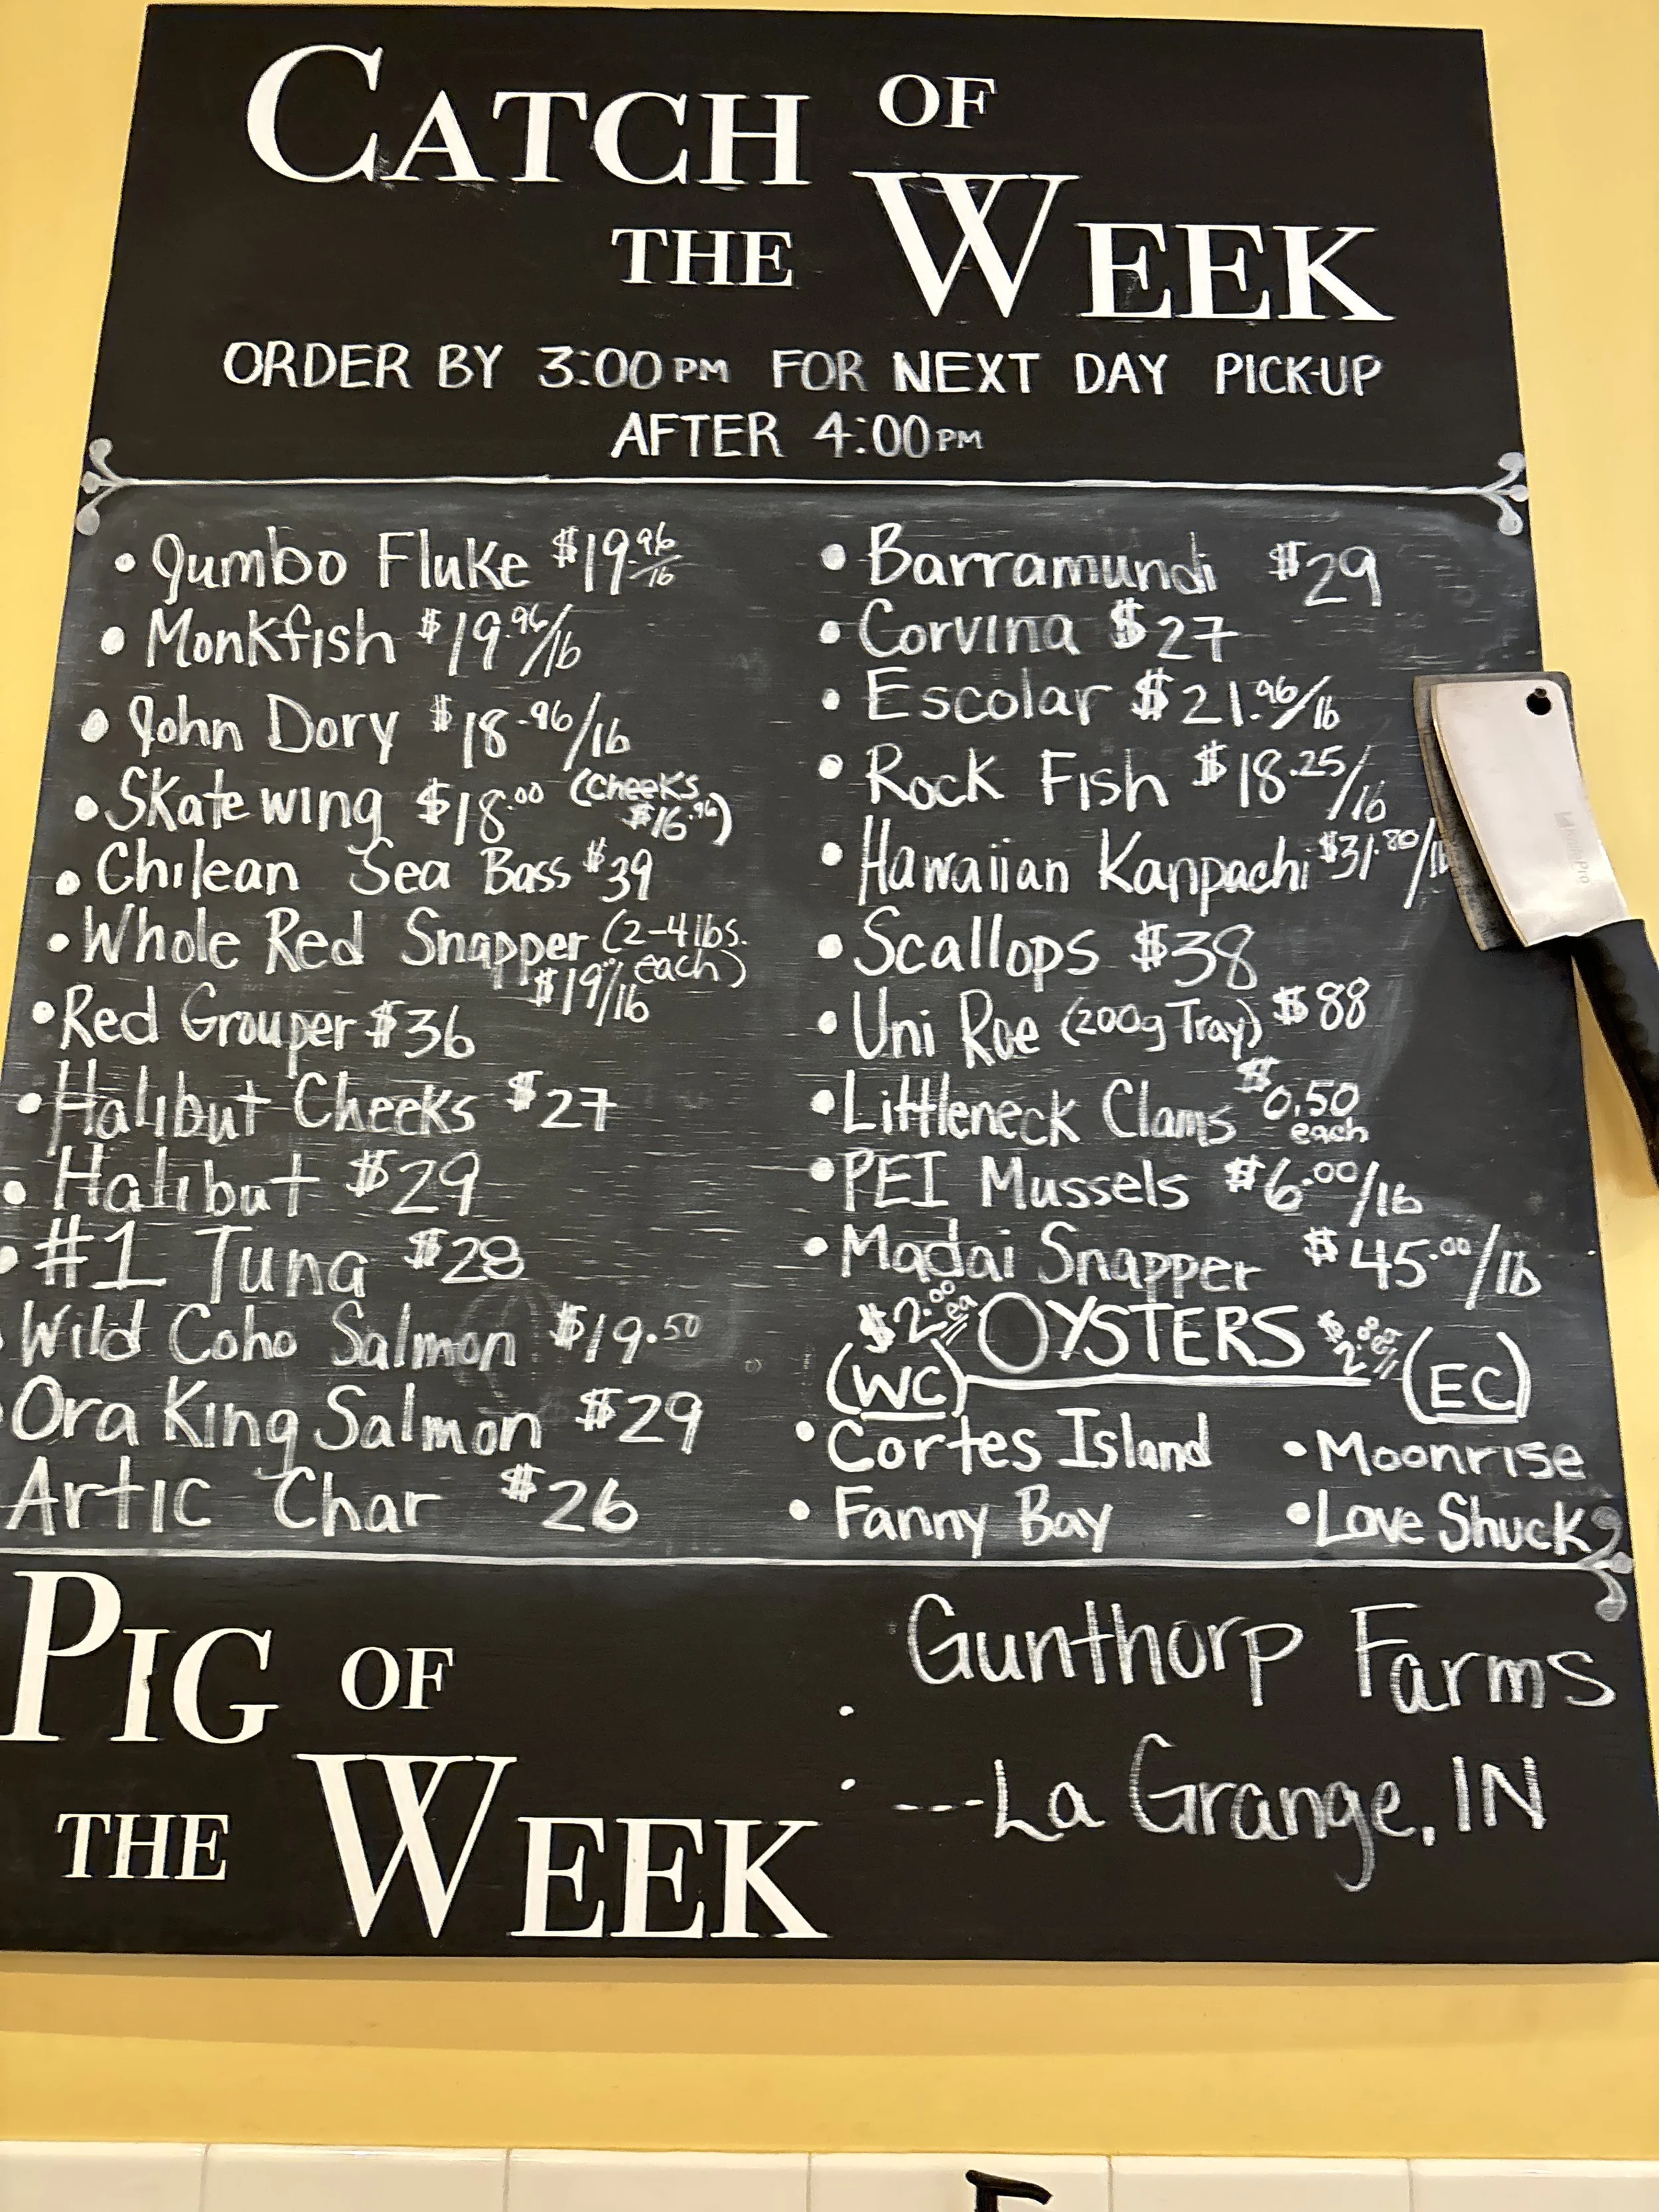 CATCH OF
THE WEEK
ORDER BY 3:00PM FOR NEXT DAY PICK-UP
AFTER 4:00PM
• Jumbo Fluke $19.96/lb
• Monkfish $19.96/lb
• John Dory $18.96/lb
• Skate wing $18.00 (cheeks
$16.96)
• Chilean Sea Bass $39
• Whole Red Snapper (2-4 lbs.
each)
/lb
• Red Grouper $36
• Halibut Cheeks $27
• Halibut $29
• #1 Tuna $28
Wild Coho Salmon $19.50
Ora King Salmon $29
Artic Char $26
• Barramundi $29
• Corvina $27
• Escolar $21.96/lb
• Rock Fish $18.25/lb
• Hawaiian Kanpachi $31.80/lb
• Scallops $38
• Uni Roe (200g Tray) $88
• Littleneck Clams $0.50
each
• PEI Mussels $6.00/lb
• Madai Snapper $45.00/lb
$2.00 ea OYSTERS
(WC) (EC)
• Cortes Island • Moonrise
• Fanny Bay • Love Shuck
PIG OF
THE WEEK
Gunthorp Farms
---La Grange, IN